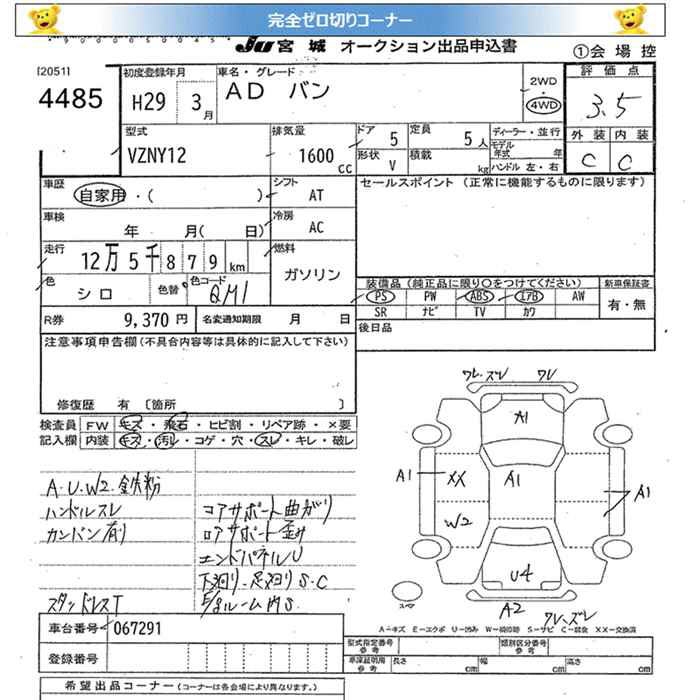 完全ゼロ切りコーナー
Ju 宮城 オークション出品申込書
①会場控
[2051]
4485
初度登録年月
H29 3月
車名・グレード
AD バン
2WD
4WD
評価点
3.5
外装 内装
C C
型式
VZNY12
排気量
1600 cc
ドア 5
定員 5人
ディーラー・並行
形状 V
積載 kg
モデル年式 年
ハンドル 左・右
車歴
自家用・( )
シフト
AT
セールスポイント (正常に機能するものに限ります)
車検
年 月( 日)
冷房
AC
走行
12万5千879km
燃料
ガソリン
色
シロ
色替
色コード
QM1
装備品(純正品に限り○をつけてください)
新車保証書
PS PW ABS エアB AW
有・無
SR ナビ TV カワ
R券 9,370円
名変通知期限 月 日
後日品
注意事項申告欄(不具合内容等は具体的に記入して下さい)
修復歴 有 〔箇所 〕
検査員記入欄
FW キズ・飛石・ヒビ割・リペア跡・×要
内装 キズ・汚レ・コゲ・穴・スレ・キレ・破レ
A・U・W2・鉄粉
ハンドルスレ
カンバン有り
スタッドレスT
コアサポート曲がり
ロアサポート歪み
エンドパネルU
下廻り・足廻りS・C
ルーム内S
ワレ・ズレ ワレ
A1
A1 XX A1 A1
W2
U4
A2 ワレ・ズレ
スペア
A=キズ E=エクボ U=凹み W=補修跡 S=サビ C=腐食 XX=交換済
車台番号 067291
登録番号
型式指定番号 参考
類別区分番号 参考
車庫証明用 参考
長さ cm 幅 cm 高さ cm
希望出品コーナー(コーナーは各会場により異なります。)